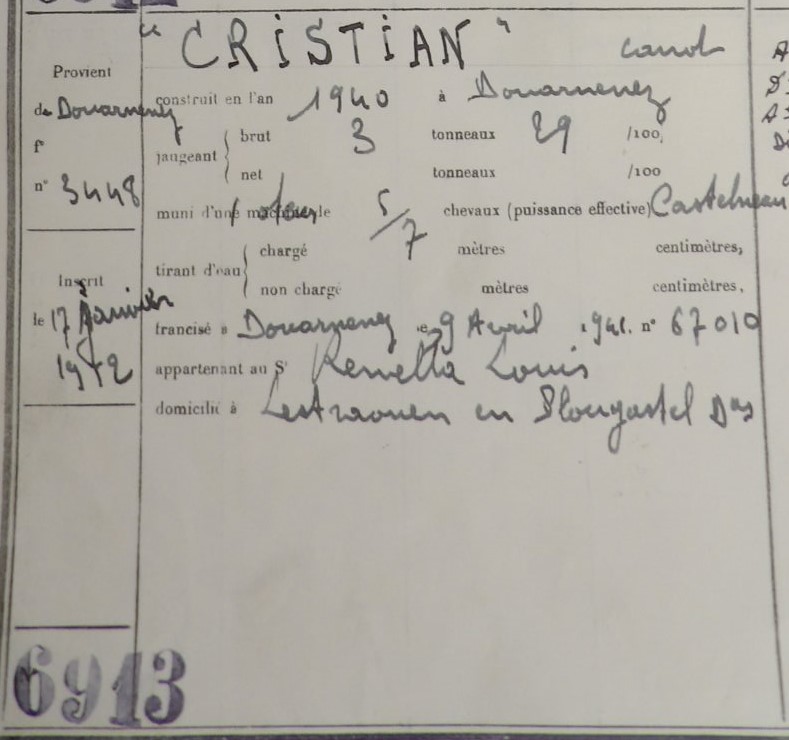 "CRISTIAN" canot
Provient
de Douarnenez
f°
n° 3448
Inscrit
le 17 Janvier
1942
construit en l'an 1940 à Douarnenez
jaugeant { brut 3 tonneaux 29 /100,
net tonneaux /100
muni d'une machine de 5/7 chevaux (puissance effective) Castelneau
tirant d'eau { chargé mètres centimètres,
non chargé mètres centimètres,
francisé à Douarnenez le 9 Avril 1941. n° 67010
appartenant au Sr Louis
domicilié à Lestraouen en Plougastel Das
6913